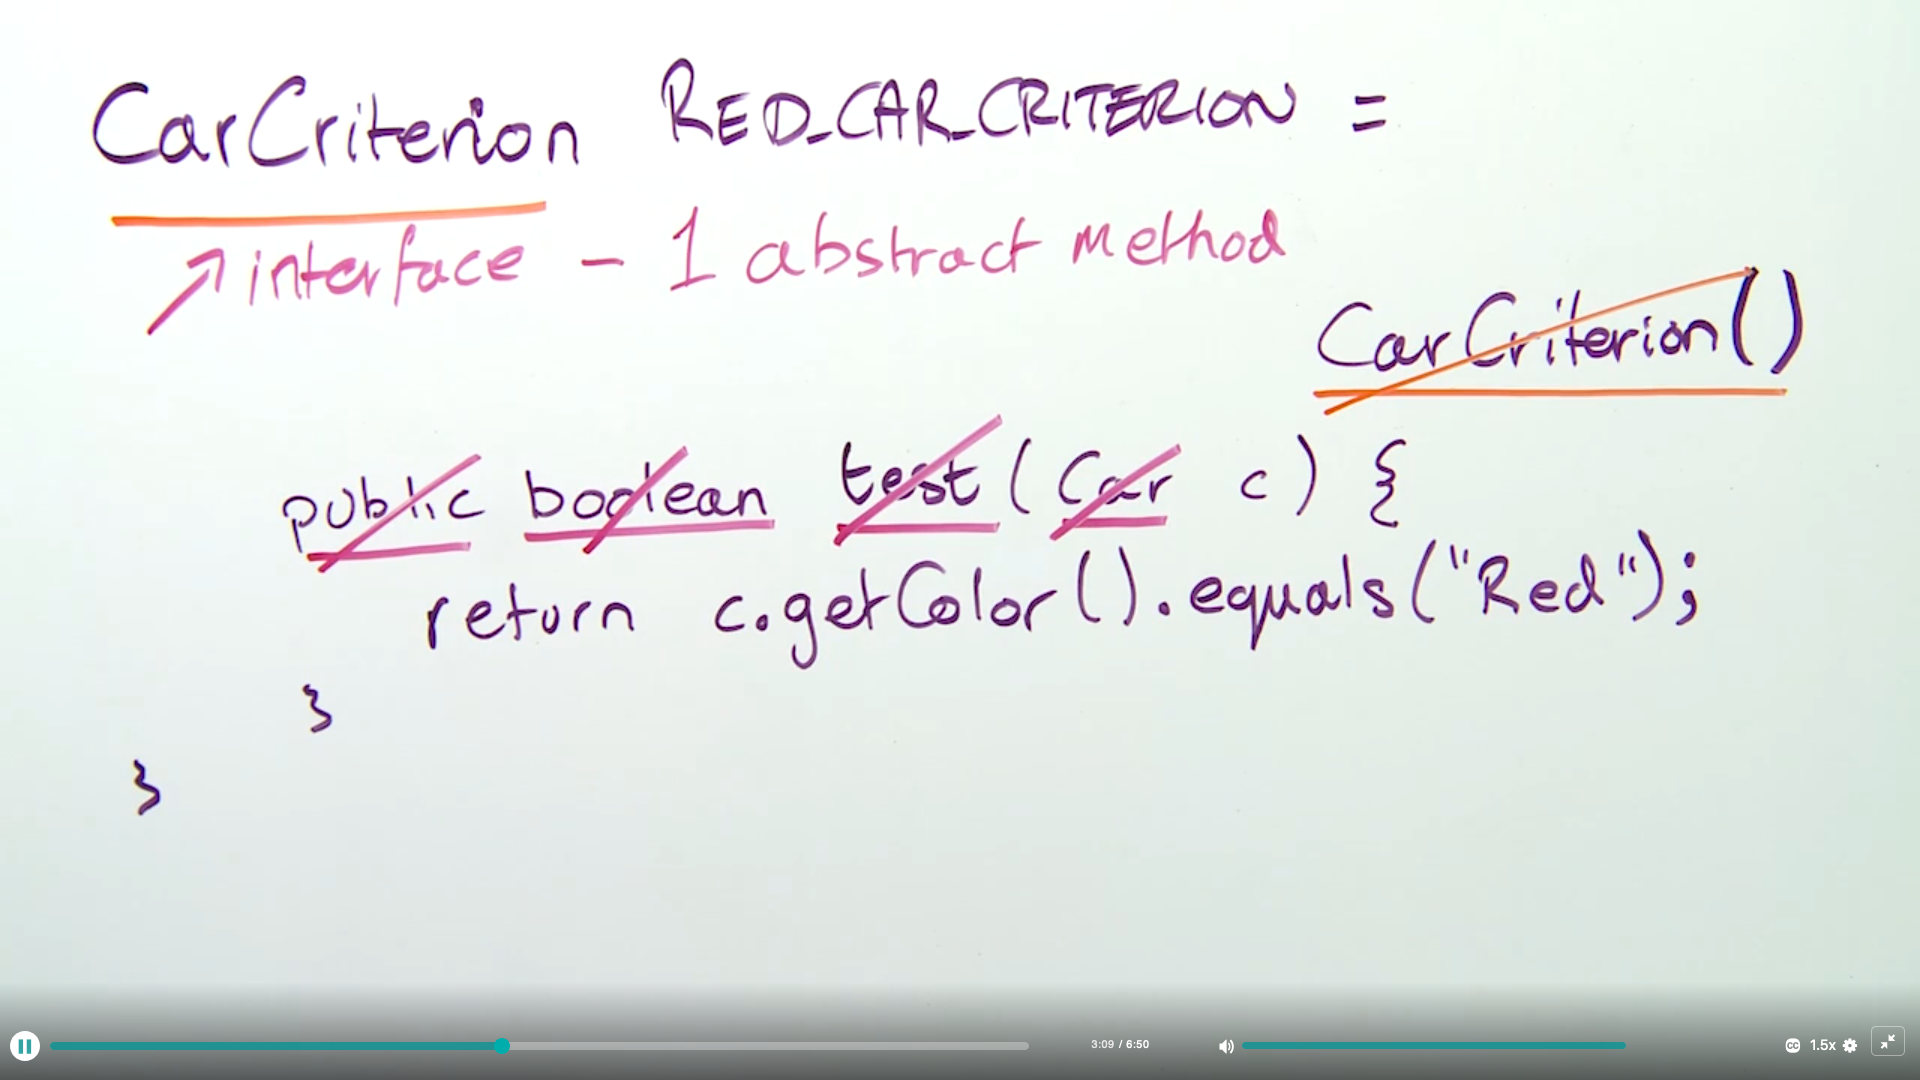 CarCriterion RED_CAR_CRITERION =
interface - 1 abstract method
CarCriterion()
public boolean test (Car c) {
return c.getColor().equals("Red");
}
}
3:09 / 6:50
CC 1.5x